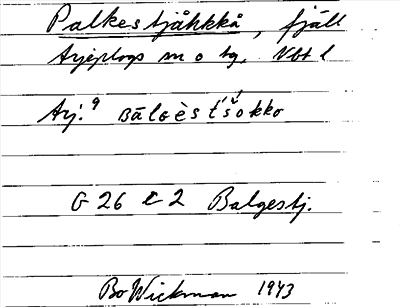 Palkestjåhkkå, fjäll
Arjeplogs sn o tg, Vbt l
Arj.9 Bālɢès t́š́okko
G 26 c 2 Balgestj.
Bo Wickman 1943